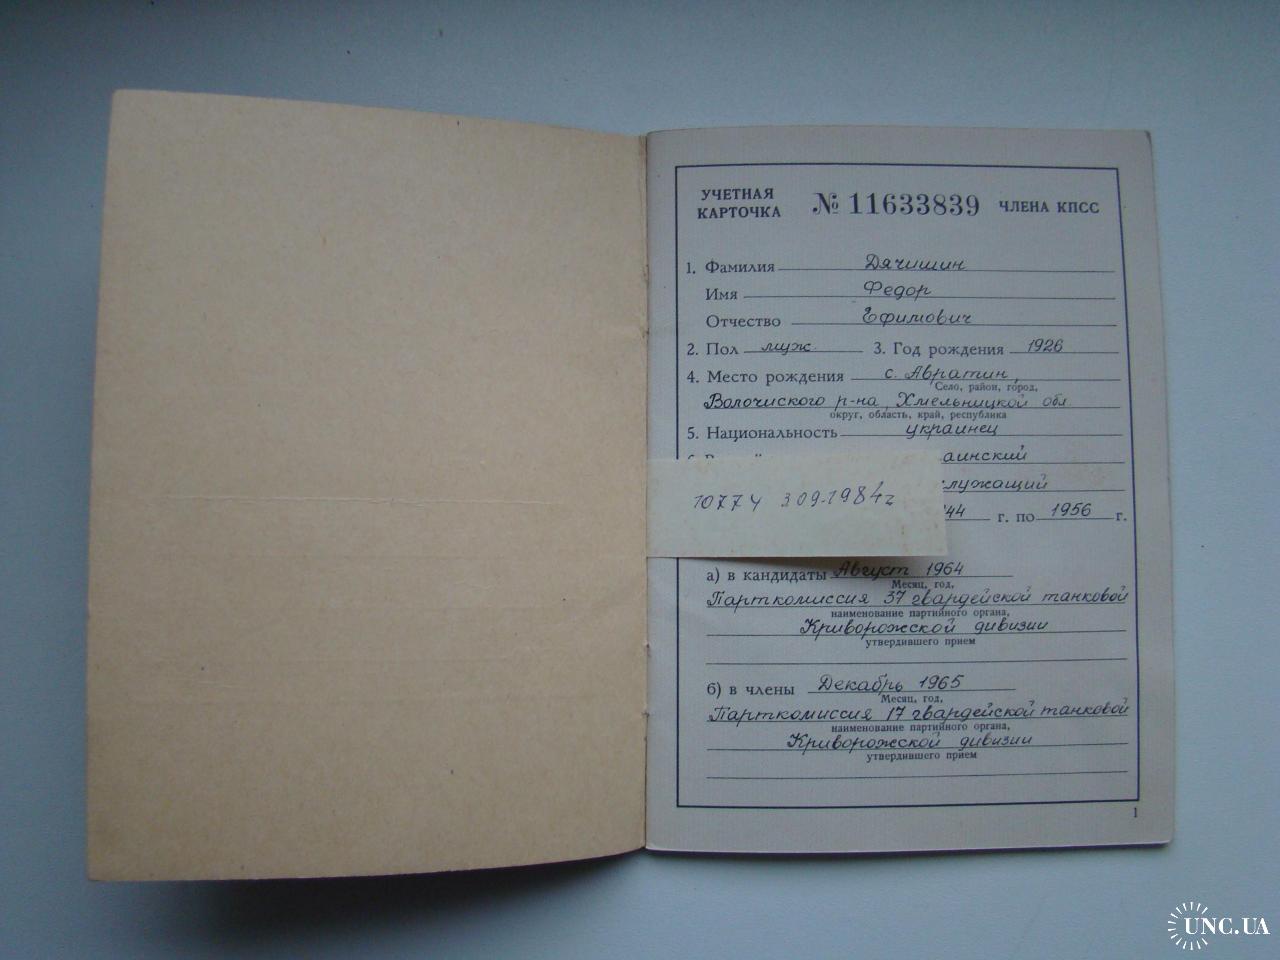 УЧЕТНАЯ КАРТОЧКА № 11633839 ЧЛЕНА КПСС
1. Фамилия Дячишин
Имя Федор
Отчество Ефимович
2. Пол муж. 3. Год рождения 1926
4. Место рождения с. Авратин,
Село, район, город,
Волочиского р-на, Хмельницкой обл
округ, область, край, республика
5. Национальность украинец
аинский
служащий
44 г. по 1956 г.
10774 3.09.1984г
а) в кандидаты Август 1964
Месяц, год,
Парткомиссия 37 гвардейской танковой
наименование партийного органа,
Криворожской дивизии
утвердившего прием
б) в члены Декабрь 1965
Месяц, год,
Парткомиссия 17 гвардейской танковой
наименование партийного органа,
Криворожской дивизии
утвердившего прием
1
UNC.UA